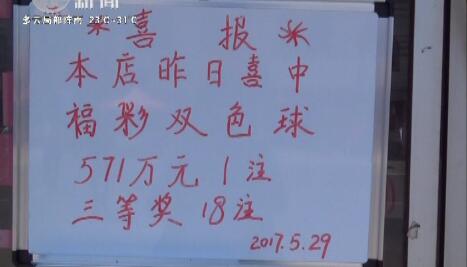 新闻
多云局部阵雨 23℃-31℃
喜报
本店昨日喜中
福彩双色球
571万元1注
三等奖18注
2017.5.29